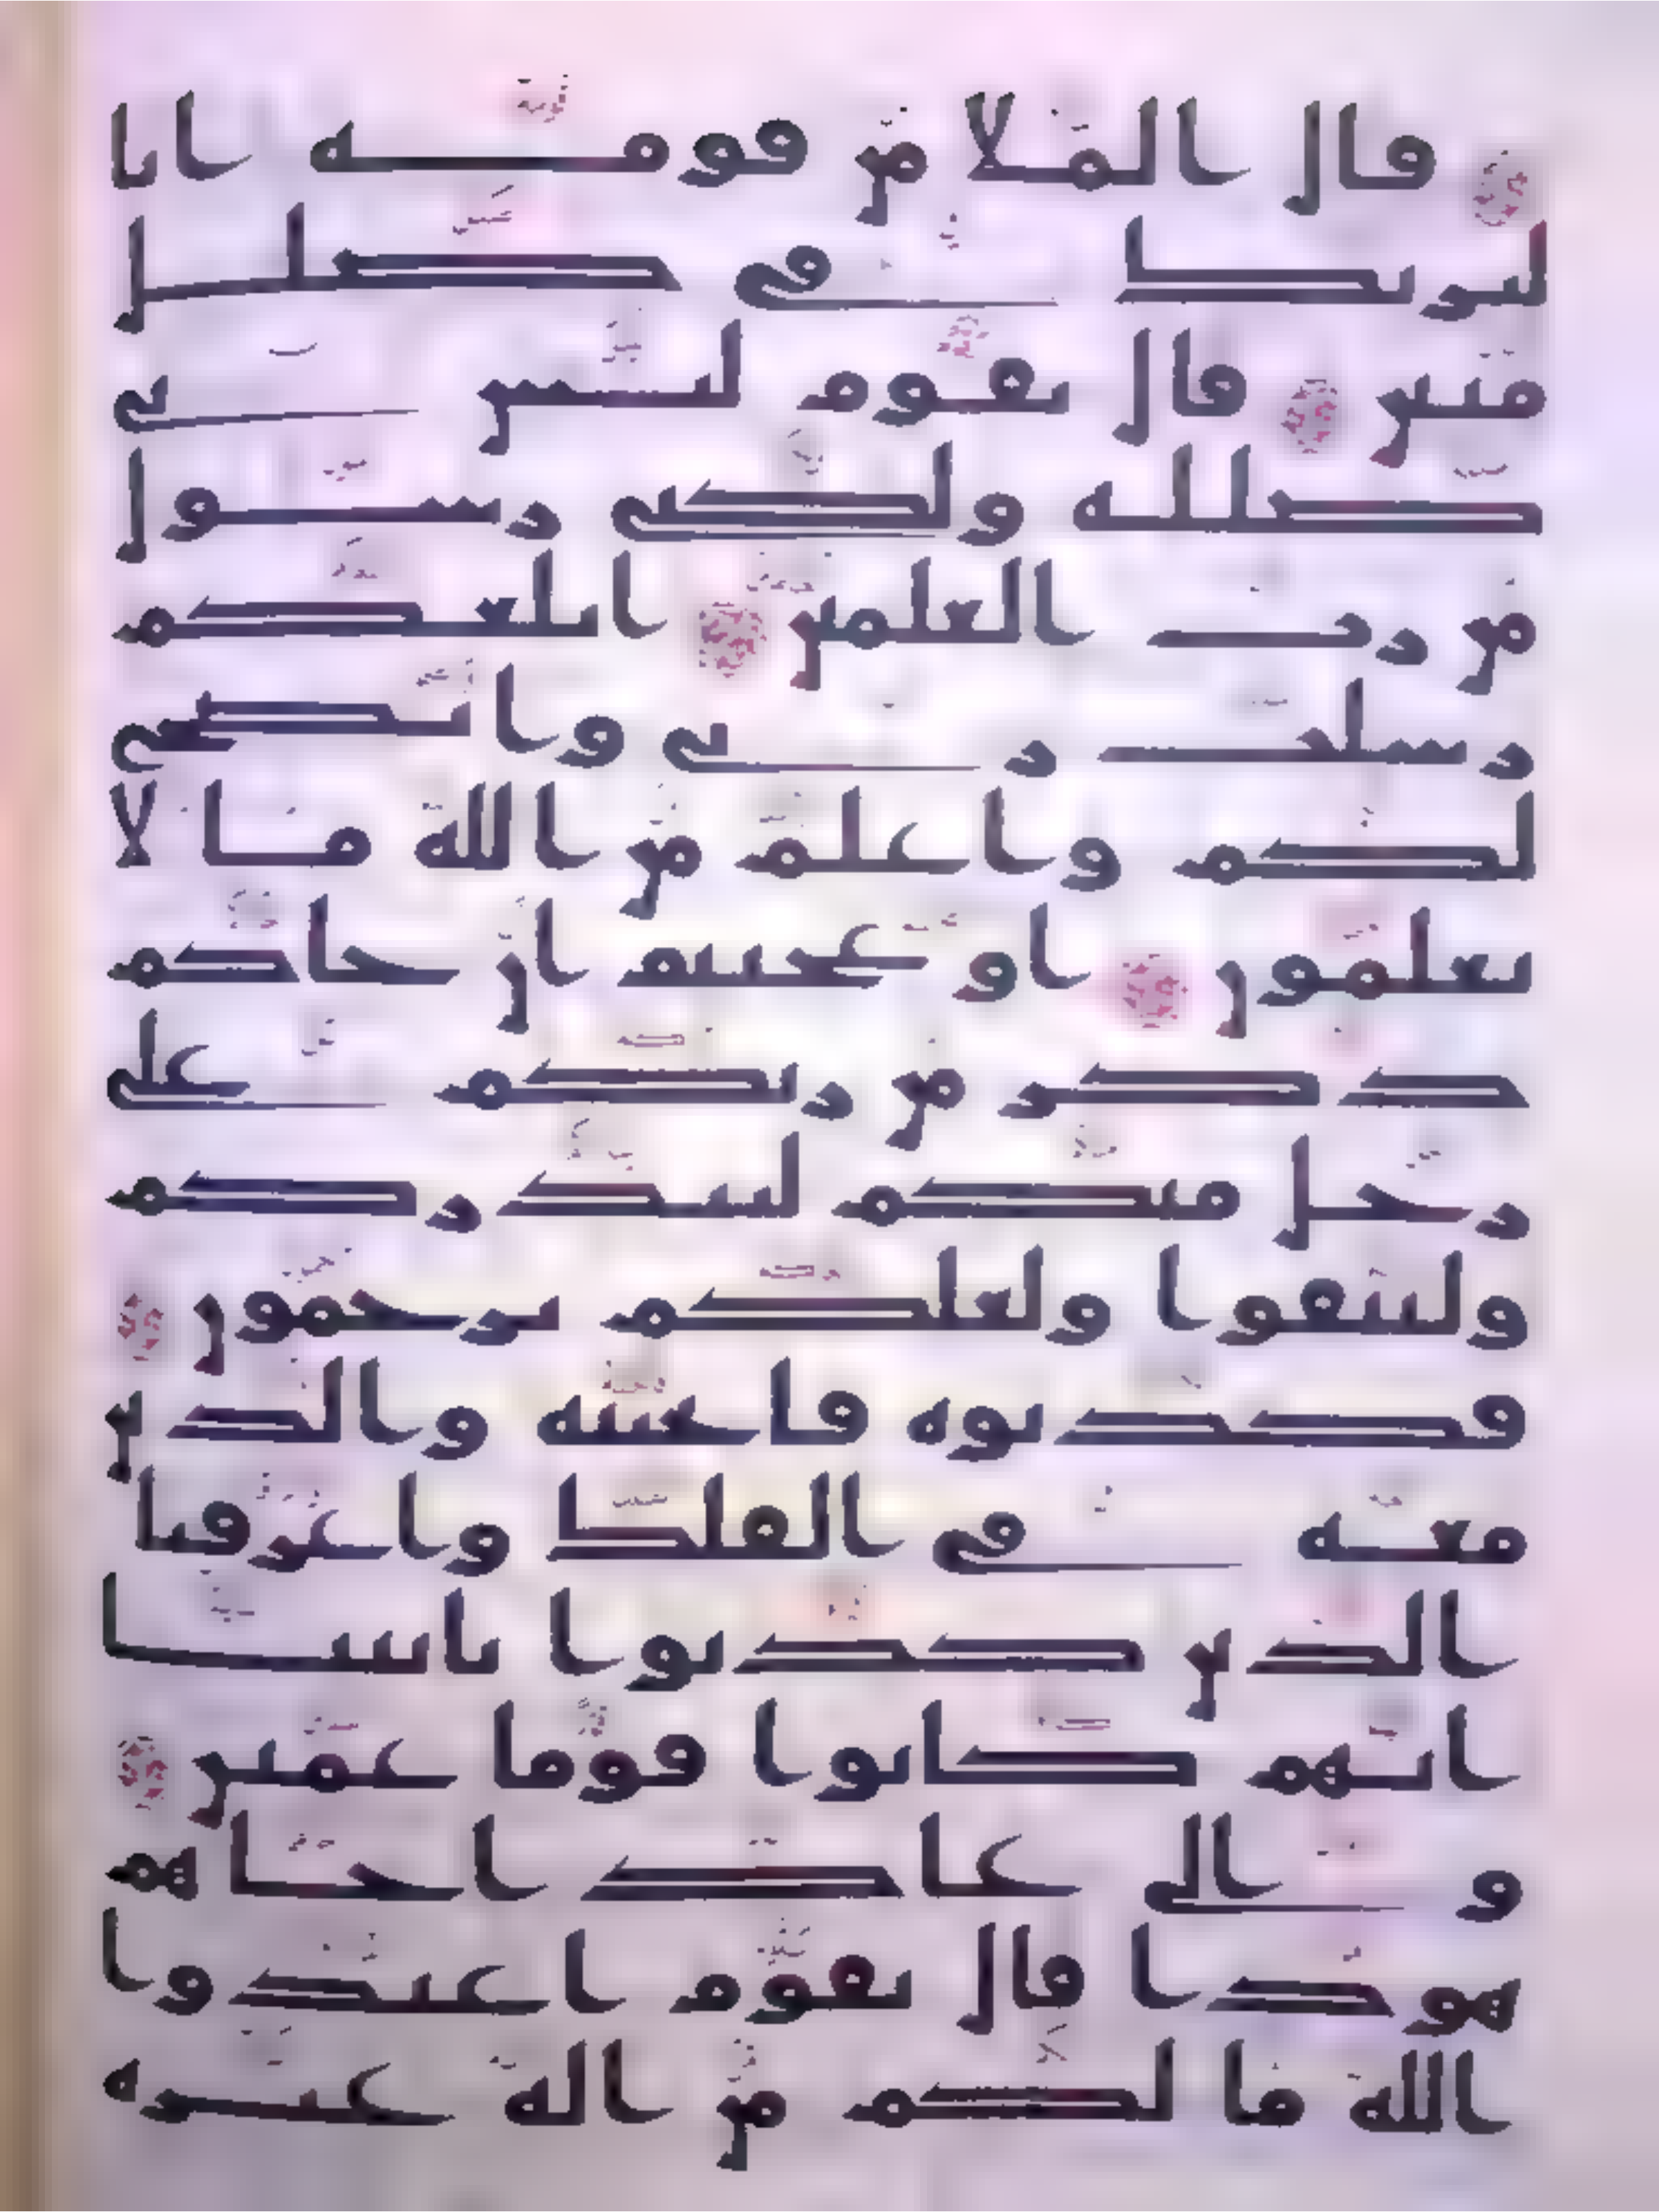 قال الملا من قومه انا
لنريك في ضلل
مبين قال يقوم ليس بي
ضللة ولكني رسول
من رب العلمين ابلغكم
رسلت ربي وانصح
لكم واعلم من الله ما لا
تعلمون او عجبتم ان جاكم
ذكر من ربكم على
رجل منكم لينذركم
ولتتقوا ولعلكم ترحمون
فكذبوه فانجينه والذين
معه في الفلك واغرقنا
الذين كذبوا بايتنا
انهم كانوا قوما عمين
و الى عاد اخاهم
هودا قال يقوم اعبدوا
الله ما لكم من اله غيره